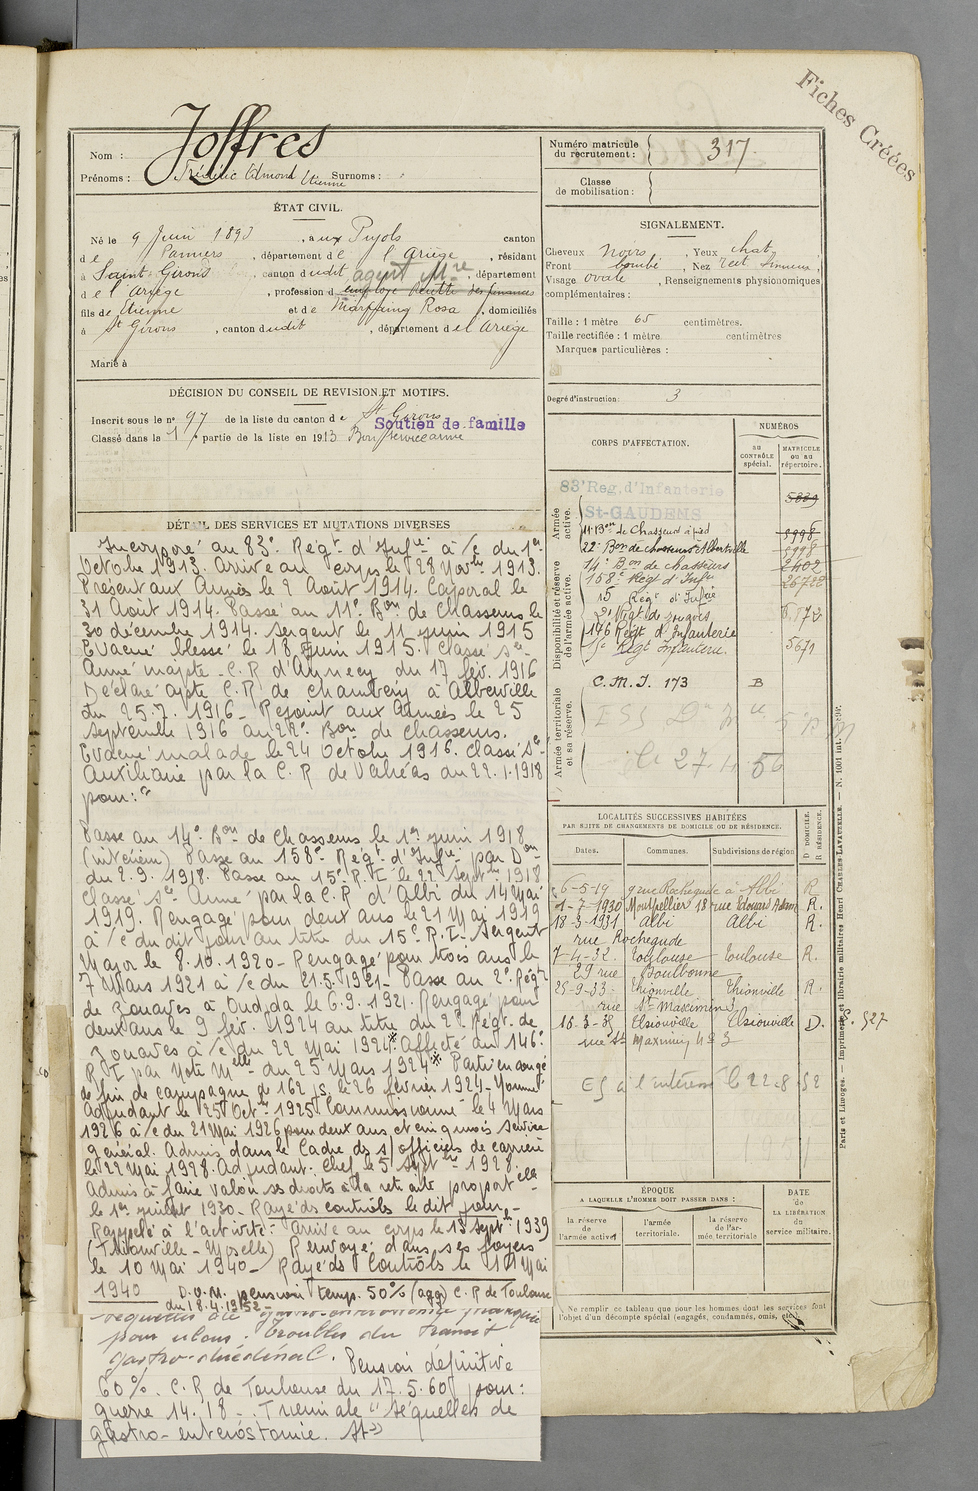 Fiches Créées
Nom : Joffres
Prénoms : Frédéric Edmond Etienne Surnoms :
Numéro matricule du recrutement : 317
Classe de mobilisation :
ÉTAT CIVIL.
Né le 9 Juin 1893, à aux Pujols canton
de Pamiers, département de l'Ariège, résidant
à Saint-Girons canton dudit agent Mre département
de l'Ariège, profession d employé Recette des finances
fils de Etienne et de Marfaing Rosa, domiciliés
à St Girons, canton dudit, département de l'Ariège
Marié à
SIGNALEMENT.
Cheveux noirs, Yeux chat.
Front bombé, Nez rect. sinueux,
Visage ovale, Renseignements physionomiques
complémentaires :
Taille : 1 mètre 65 centimètres.
Taille rectifiée : 1 mètre centimètres
Marques particulières :
Degré d'instruction : 3
DÉCISION DU CONSEIL DE REVISION ET MOTIFS.
Inscrit sous le n° 97 de la liste du canton de St Girons
Soutien de famille
Classé dans la 1e partie de la liste en 1913 Bon service armé
DÉTAIL DES SERVICES ET MUTATIONS DIVERSES
Incorporé au 83e Régt d'Infie à /c du 1er
Octobre 1913. Arrivé au corps le 28 Novbre 1913.
Présent aux Armées le 2 Août 1914. Caporal le
31 Août 1914. Passé au 11e Bon de Chasseurs le
30 décembre 1914. Sergent le 11 juin 1915
Evacué blessé le 18 juin 1915. Classé sce
Armé inapte C.R d'Annecy du 17 fév. 1916
Déclaré apte C.R de Chambéry à Albertville
du 25.7.1916 - Rejoint aux Armées le 25
septembre 1916 au 22e Bon de Chasseurs.
Evacué malade le 24 Octobre 1916. Classé sce
Auxiliaire par la C.R de Valréas du 22.1.1918
pour:"
Passé au 14e Bon de Chasseurs le 1er juin 1918
(intérieur) Passé au 158e Régt d'Infie par Don
du 2.9.1918. Passé au 15e R.I. le 22 Septbre 1918
Classé sce Armé par la C.R d'Albi du 14 Mai
1919. Rengagé pour deux ans le 21 Mai 1919
à /c du dit jour au titre du 15e R.I. Sergent
Major le 8.10.1920 - Rengagé pour trois ans le
7 Mars 1921 à /c du 21.5.1921. Passé au 2e Régt
de Zouaves à Oudjda le 6.9.1921. Rengagé pour
deux ans le 9 fév. 1924 au titre du 2e Régt de
Zouaves à /c du 22 Mai 1924* Affecté au 146e
R.I par Note Melle du 25 Mars 1924* Parti en congé
de fin de campagne de 162 js le 26 février 1924 - Nommé
Adjudant le 25 Octbre 1925. Commissionné le 4 Mars
1926 à /c du 21 Mai 1926 pour deux ans et cinq mois service
général. Admis dans le Cadre des s/officiers de carrière
le 22 Mai 1928. Adjudant-Chef le 5 Septbre 1928.
Admis à faire valoir ses droits à la retraite proportelle
le 1er juillet 1930 - Rayé ds contrôls le dit jour.
Rappelé à l'activité: Arrivé au corps le 13 Septbre 1939
(Thionville - Moselle) Renvoyé dans ses foyers
le 10 Mai 1940 - Rayé ds Contrôls le 11 Mai
1940
D.V.M. pension temp. 50% (agg) C.R de Toulouse
du 18.4.1952 -
séquelles de gastro-entérostomie
pour ulcus. Troubles du transit
gastro-duodénal. Pension définitive
60%. C.R de Toulouse du 17.5.60 pour:
guerre 14.18 - Triennale "Séquelles de
gastro-entérostomie.
CORPS D'AFFECTATION.
NUMÉROS
au contrôle spécial.
matricule ou au répertoire.
Armée active.
83e Reg. d'Infanterie 5889
St-GAUDENS
11e Bon de Chasseurs à pied 8998
22e Bon de chasseurs Albertville 8998
Disponibilité et réserve de l'armée active.
14e Bon de chasseurs 2402
158e Régt d'Infie 26722
15 Régt d'Infie
2e Régt de zouaves 6.172
146 Régt d'Infanterie
Régt Infanterie. 5671
Armée territoriale et sa réserve.
C.M.I. 173 B
LOCALITÉS SUCCESSIVES HABITÉES
PAR SUITE DE CHANGEMENTS DE DOMICILE OU DE RÉSIDENCE.
Dates. Communes. Subdivisions de région
D DOMICILE. R RÉSIDENCE.
6-5-19 9 rue Rochegude à Albi R
1-7-1930 Montpellier 18 rue Edouard Adam R.
18-3-1931 Albi Albi R.
rue Rochegude
7-4-32. Toulouse Toulouse R.
29 rue Boulbonne
25-9-33 Thionville Thionville R.
rue St Maximin 3
16-3-38 Thionville Thionville D.
rue St Maximin No 3
ES à l'intéressé le 22-8-52
ÉPOQUE
A LAQUELLE L'HOMME DOIT PASSER DANS :
la réserve de l'armée active
l'armée territoriale.
la réserve de l'armée territoriale
DATE de LA LIBÉRATION du service militaire.
Ne remplir ce tableau que pour les hommes dont les services font
l'objet d'un décompte spécial (engagés, condamnés, omis, etc.)
Paris et Limoges. — Imprimerie et librairie militaires Henri CHARLES-LAVAUZELLE. — N. 1001 int.